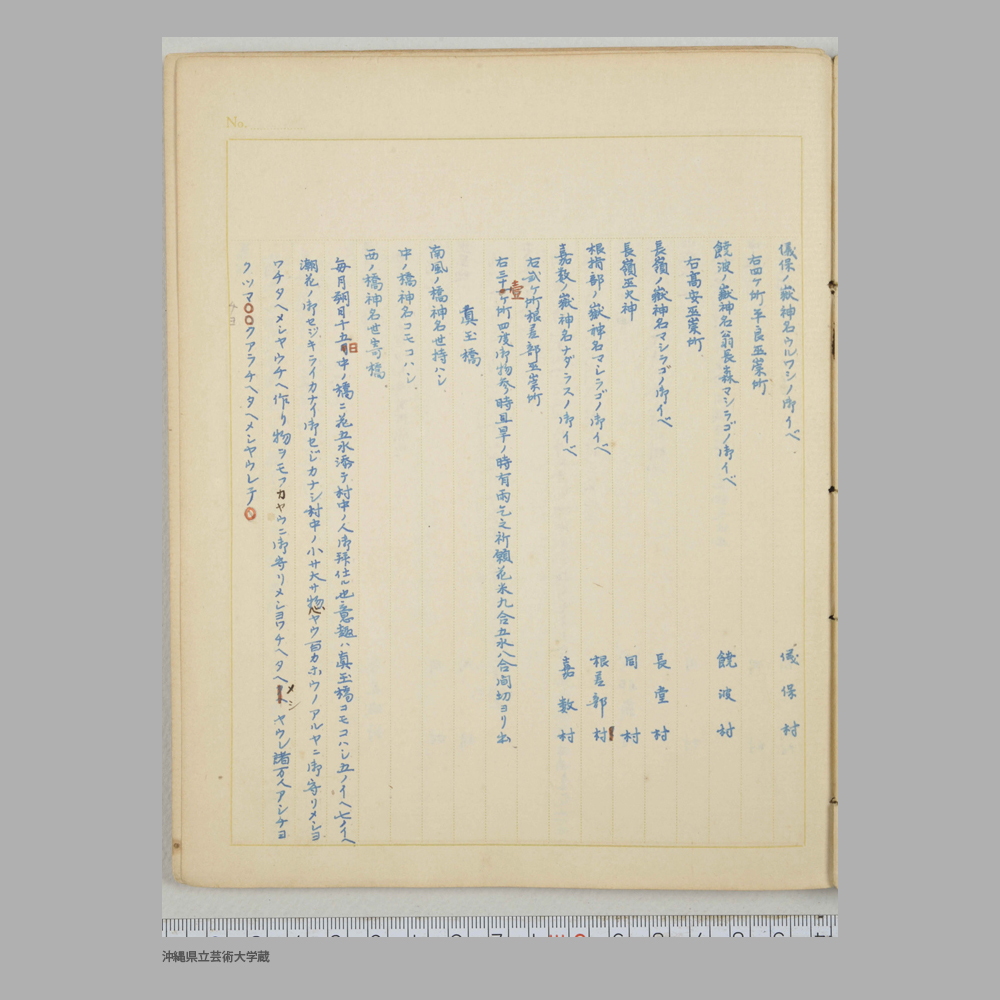 No.
儀保ノ嶽神名ウルワシノ御イベ 儀保村
右四ヶ所平良巫崇所
饒波ノ嶽神名翁長森マシラゴノ御イベ 饒波村
右髙安巫崇所
長嶺ノ嶽神名マシラゴノ御イベ 長堂村
長嶺巫火神 同村
根指部ノ嶽神名マシラゴノ御イベ 根差部村
嘉数ノ嶽神名ナダラスノ御イベ 嘉数村
右弐ヶ所根差部巫崇所
右三十壹ヶ所四度御物参ノ時且旱ノ時有雨乞之祈願花米九合五水八合間切ヨリ出
眞玉橋
南風ノ橋神名世持ハシ
中ノ橋神名コモコハシ
西ノ橋神名世寄橋
毎月朔日十五日中ノ橋ニ花五水添テ村中ノ人御拜仕ル也意趣ハ真玉橋コモコハシ五ノイヘ七ノイヘ
潮花ノ御セジキライカナイ御セジカナシ村中ノ小サ大サ惣ヤウ百カホウノアルヤニ御寄リメシヨ
ワチタヘメシヤウチヘ作り物ヲモフカヤウニ御寄リメシヨワチヘタヘメシヤウレ諸万人アシチヨ
クツマ〇〇クアラチヘタヘメシヤウレテ〇
沖縄県立芸術大学蔵